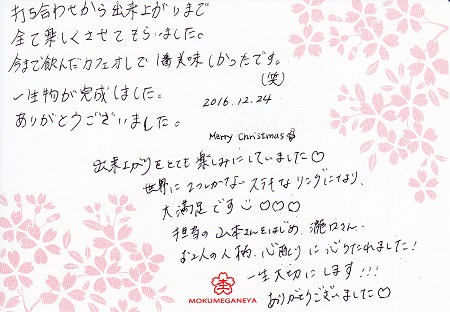 打ち合わせから出来上がりまで
全て楽しくさせてもらいました。
今まで飲んだカフェオレで1番美味しかったです。
(笑)
一生物が完成しました。
ありがとうございました。
2016.12.24
Merry Christmas
出来上がりをとても楽しみにしていました♡
世界に1つしかないステキなリングになり、
大満足です♡♡♡
担当の山本さんをはじめ、滝口さん、
お2人の人柄、心配りに心うたれました!
一生大切にします!!!
ありがとうございました♡
MOKUMEGANEYA